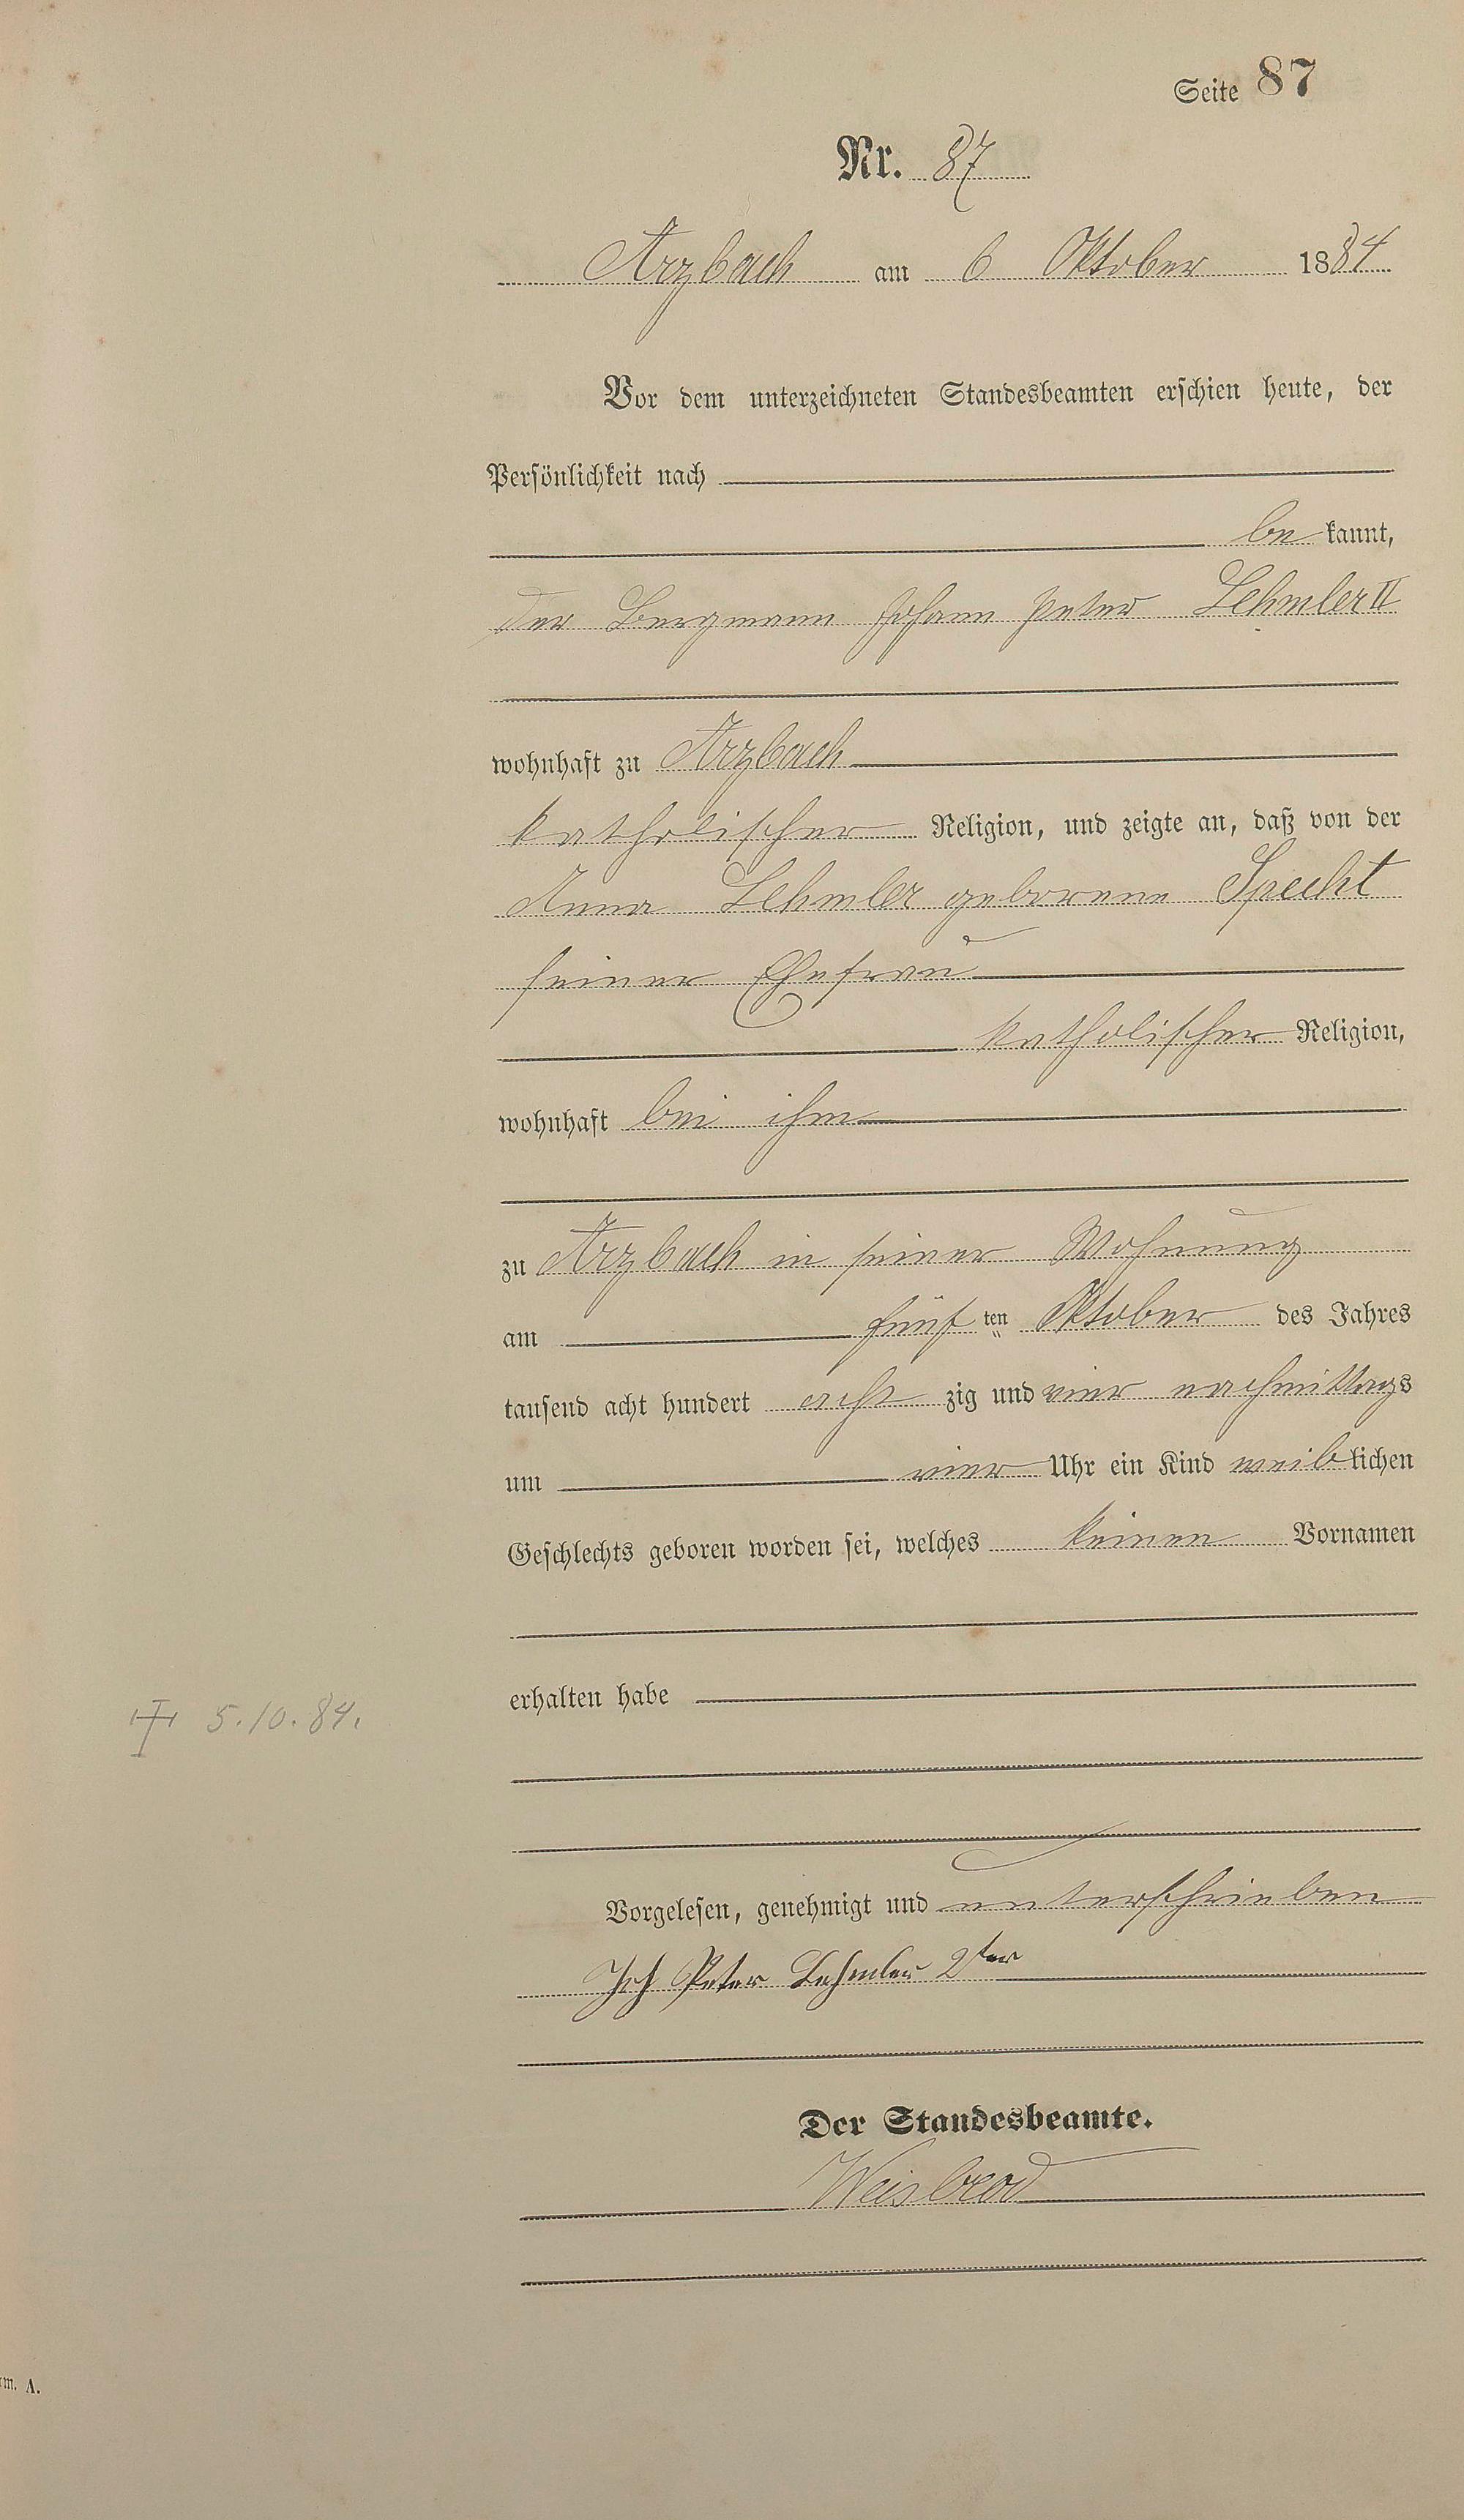 Seite 87
Nr. 87
Arzbach am 6 Oktober 1884
Vor dem unterzeichneten Standesbeamten erschien heute, der
Persönlichkeit nach
be kannt,
der Bergmann Johann Peter Lehmler II
wohnhaft zu Arzbach
katholischer Religion, und zeigte an, daß von der
Anna Lehmler geborene Specht
seiner Ehefrau
katholischer Religion,
wohnhaft bei ihm
zu Arzbach in seiner Wohnung
am fünf ten Oktober des Jahres
tausend acht hundert acht zig und vier nachmittags
um vier Uhr ein Kind weiblichen
Geschlechts geboren worden sei, welches keinen Vornamen
erhalten habe
† 5.10.84.
Vorgelesen, genehmigt und unterschrieben
Joh Peter Lehmler 2ter
Der Standesbeamte.
Weisbrod
rm. A.